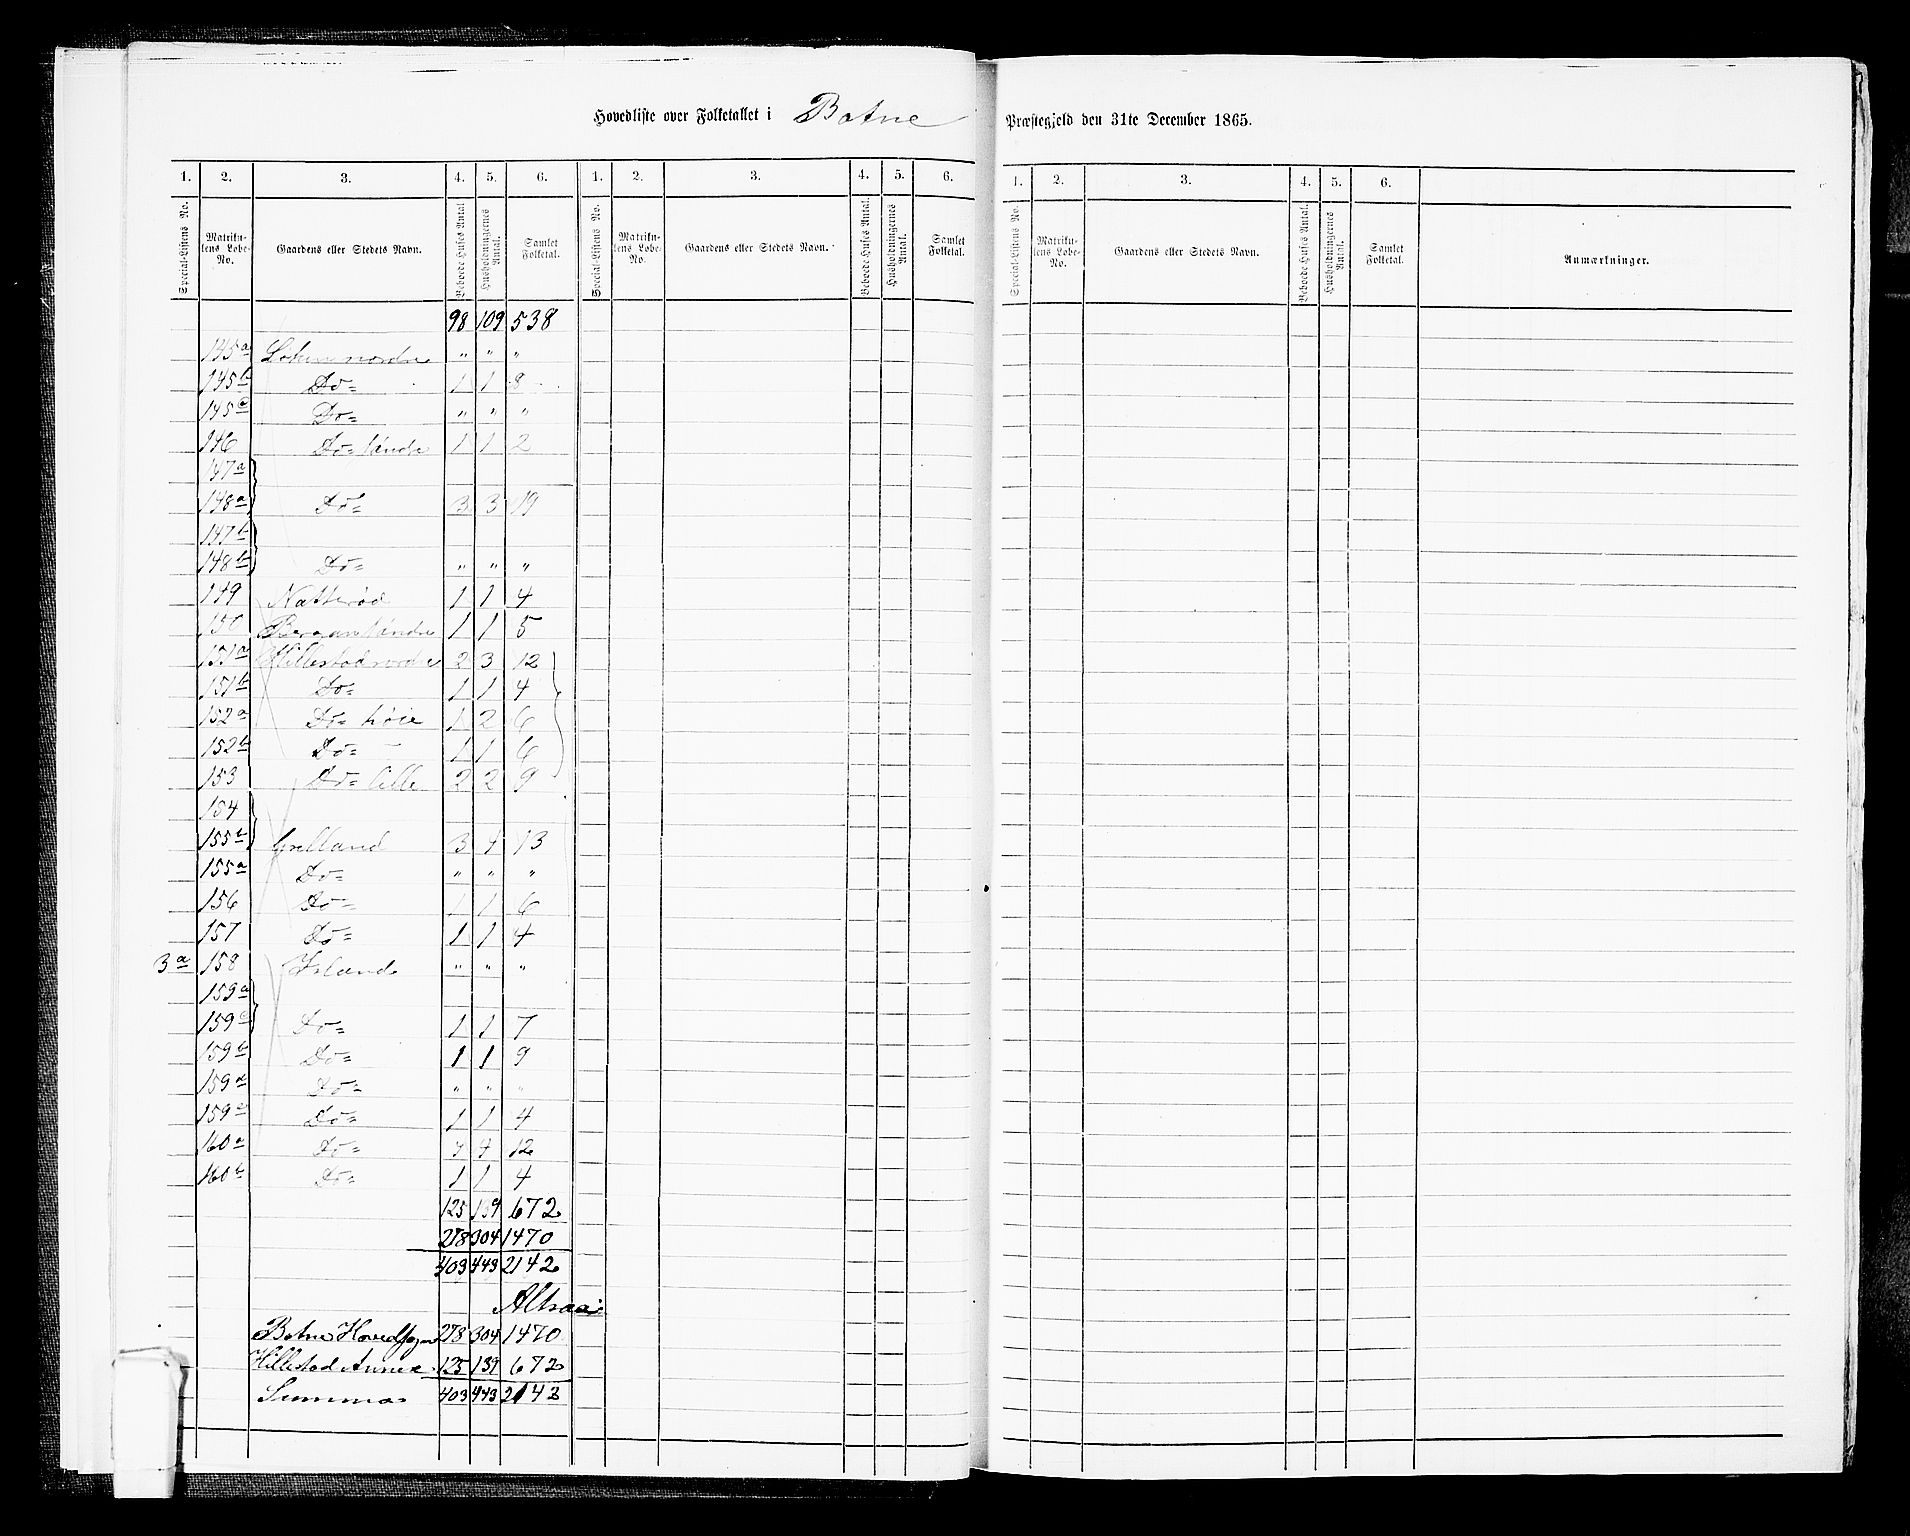 Hovedliste over Folketallet i Botne Præstegjeld den 31te December 1865.
1. 2. 3. 4. 5. 6. 1. 2. 3. 4. 5. 6. 1. 2. 3. 4. 5. 6.
Special-Listens No. Matrikulens Løbe-No. Gaardens eller Stedets Navn. Beboede Huses Antal Husholdningernes Antal. Samlet Folketal. Special-Listens No. Matrikulens Løbe-No. Gaardens eller Stedets Navn. Beboede Huses Antal. Husholdningernes Antal. Samlet Folketal. Special-Listens No. Matrikulens Løbe-No. Gaardens eller Stedets Navn. Beboede Huses Antal. Husholdningernes Antal. Samlet Folketal. Anmærkninger.
98 109 538
145a nordre " " "
145b Do= 1 1 8
145c Do= " " "
146 Do= søndre 1 1 2
147a
148a Do= 3 3 19
147b
148b Do= " " "
149 Natterød 1 1 4
150 Bergan søndre 1 1 5
151a Hillestad nordre 2 3 12
151b Do= 1 1 4
152a Do= høie 1 2 6
152b Do= 1 1 6
153 Do= lille 2 2 9
154
155b Grelland 3 4 13
155a Do= " " "
156 Do= 1 1 6
157 Do= 1 1 4
3a 158 Island " " "
159a
159c Do= 1 1 7
159b Do= 1 1 9
159d Do= " " "
159e Do= 1 1 4
160a Do= 4 4 12
160b Do= 1 1 4
125 139 672
278 304 1470
403 443 2142
Altsaa:
Botne Hovedsogn 278 304 1470
Hillestad Annex 125 139 672
Summa 403 443 2142